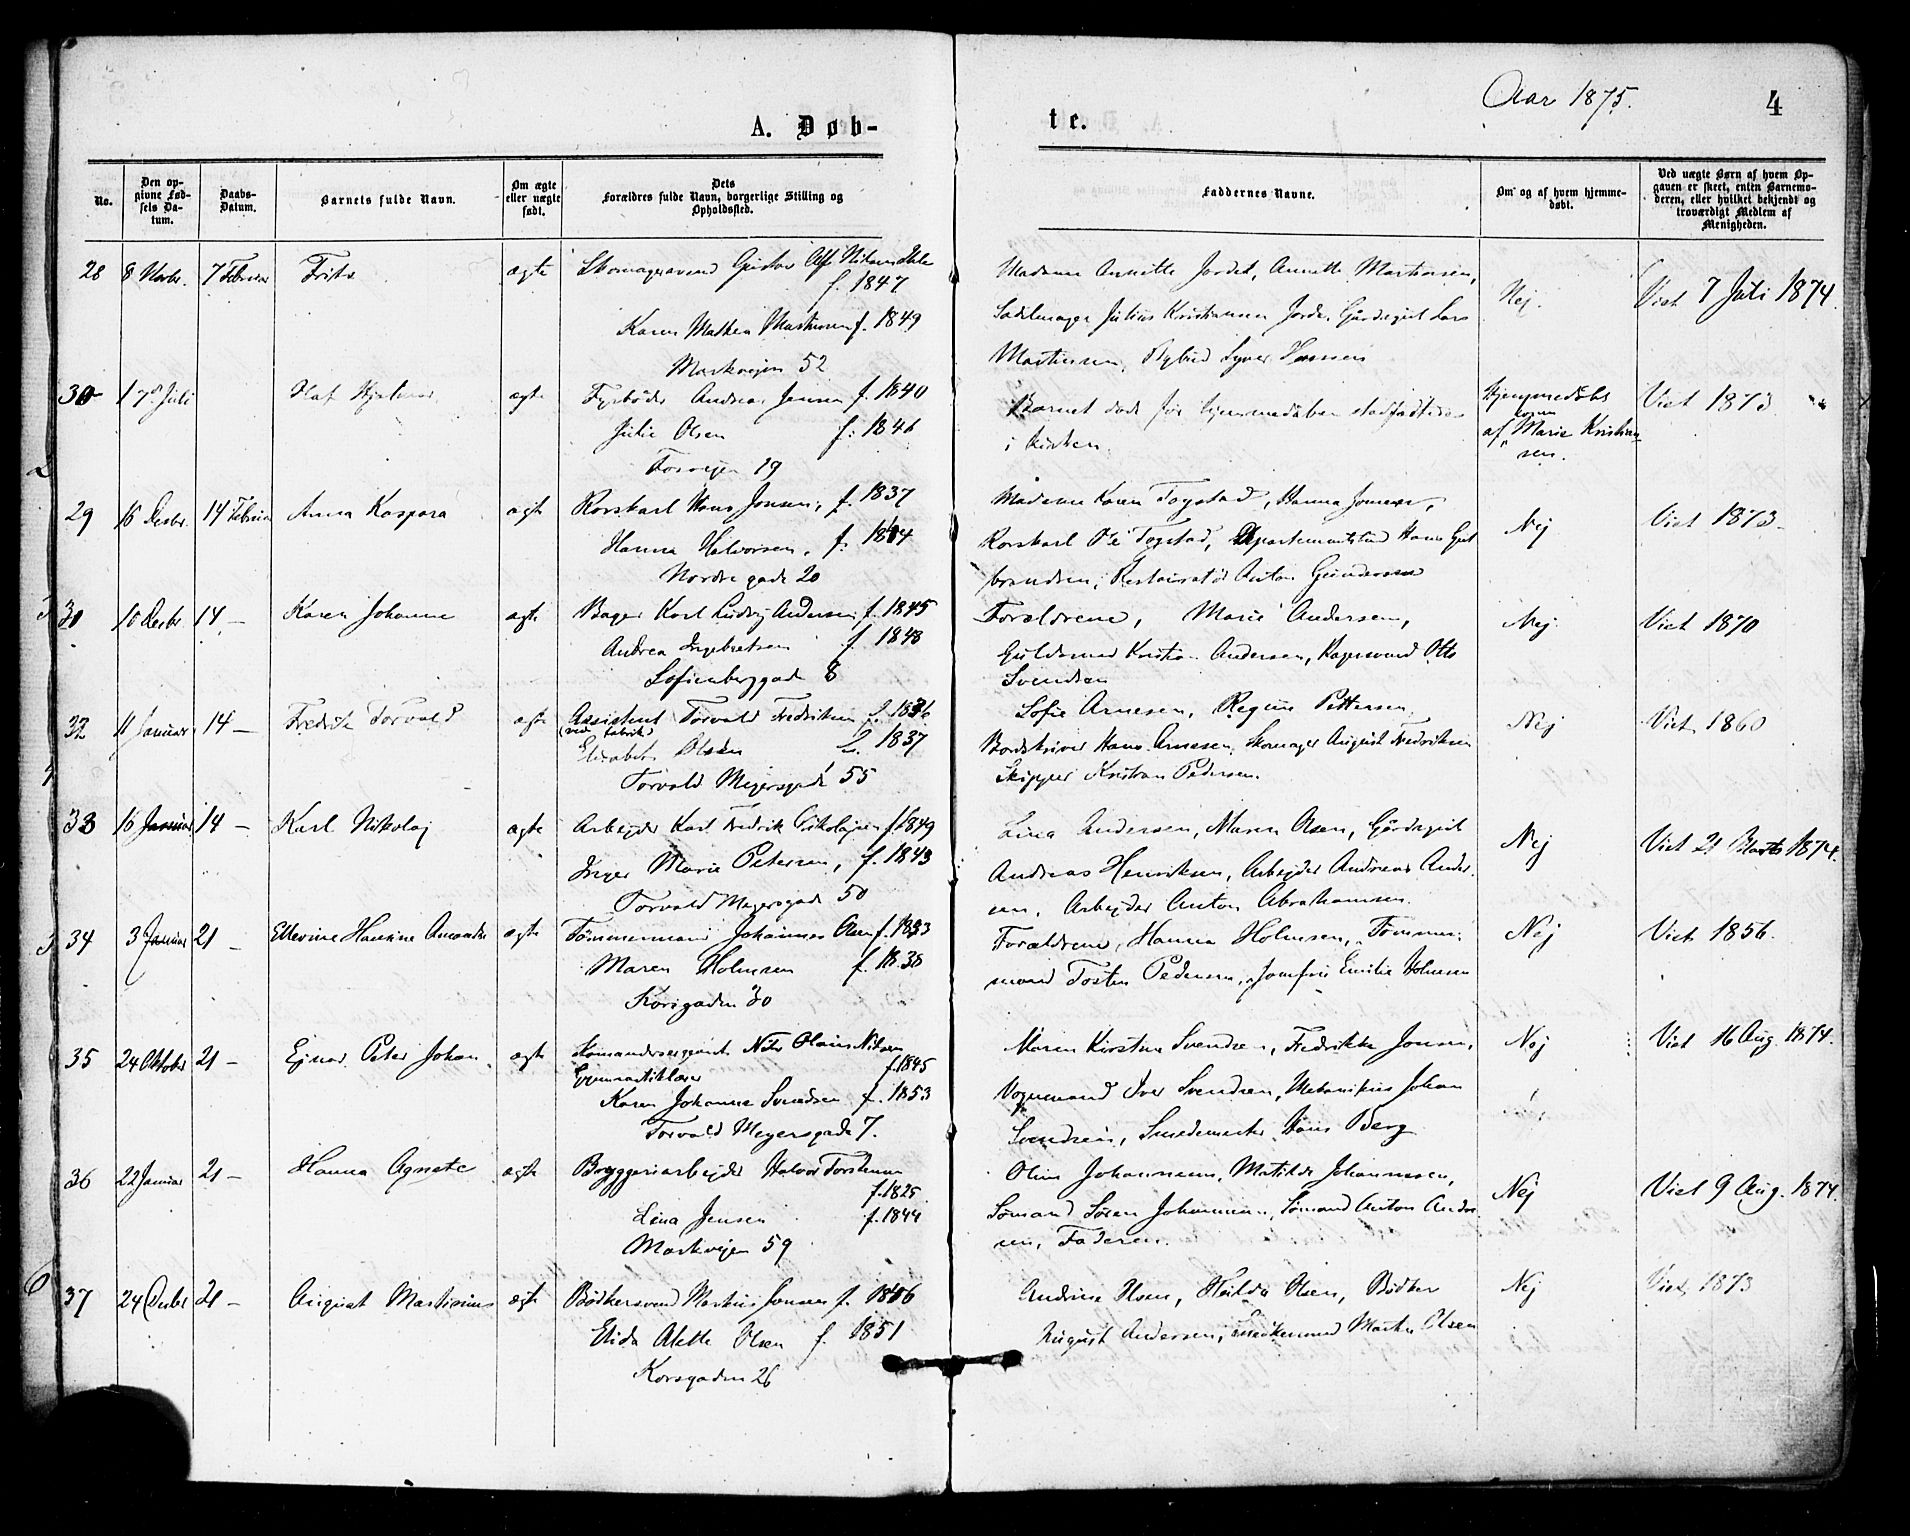 Aar 1875.
4
A. Døb-
te.
No.
Den op-
givne Fød-
sels Da-
tum.
Daabs-
Datum.
Barnets fulde Navn.
Om ægte
eller uægte
født.
Dets
Forældres fulde Navn, borgerlige Stilling og
Opholdssted.
Faddernes Navne.
Om og af hvem hjemme-
døbt.
Ved uægte Børn af hvem Op-
gaven er skeet, enten Barnemo-
deren, eller hvilket bekjendt og
troværdigt Medlem af
Menigheden.
28 8 Novbr. 7 Februar Frits ægte Skomagersvend Gustav
f. 1847
Karen Mathea Martinsen f. 1849
Markvejen 52
Madame Annette Jordet, Annette Martinsen,
Sadelmager Julius Kristiansen Gårdsgut Lars
Martinsen, Bybud Syver Hansen
Nej.
Viet 7 Juli 1874.
30 17de Juli Olaf Hjalmar ægte Fyrbøder Andreas Jensen f. 1840
Julie Olsen f. 1846
Fosvejen 19
Barnet døde før hjemmedåben stadfæstedes
i kirken.
Hjemmedøbt
af Marie Kristian
sen.
Viet 1873
29 16 Decbr. 14 Februar Anna Kaspara ægte Rorskarl Hans Jonsen, f. 1837
Hanna Halvorsen, f.
Nordregade 20
Madame Karen Togstad, Hanna
Rorskarl Ole Togstad, Departementsbud Hans Gul
brandsen, Restauratør Anton Gundersen
Nej
Viet 1873
31 10 Decbr. 14 — Karen Johanne ægte Bager Karl Ludvig Andersen f. 1845
Andrea Ingebretsen f. 1848
Sofienberggade 8
Forældrene, Marie Andersen,
Guldsmed Kristian Andersen, Otto
Svendsen
Nej
Viet 1870
32 11 Januar 14 — Fredrik Torvald ægte Assistent Torvald Fredriksen f. 1836
(ved fabrik)
Elisabet Olsen f. 1837
Torvald Meyersgade 55
Sofie Arnesen, Regine Pettersen,
Bordskriver Hans Arnesen, Skomager August Fredriksen
Skipper Kristian Pedersen.
Nej
Viet 1860
33 16 Januar 14 — Karl Nikolaj ægte Arbejder Karl Fredrik Nikolajsen f. 1849
Inger Marie Petersen, f. 1843
Torvald Meyersgade 50
Lina Andersen, Maren Olsen, Gårdsgut
Andreas Henriksen, Arbejder Andreas Ander-
sen, Arbejder Anton Abrahamsen.
Nej
Viet 21 Marts 1874.
34 3 Januar 21 — Ellevine Hansine Amanda ægte Tømmermand Johannes Olsen f. 1833
Maren Holmsen f. 1838
Korsgaden 30
Forældrene, Hanna Holmsen, Tømmer-
mand Tosten Pedersen, Jomfru Emilie Holmsen
Nej
Viet 1856.
35 24 Oktober 21 — Ejnar Peter Johan ægte Kommandersergeant Nils Olaus Nilsen
Gymnastiklærer f. 1845
Karen Johanne Svendsen f. 1853
Torvald Meyersgade 7.
Maren Kirstine Svendsen, Fredrikke Jonsen,
Vognmand Iver Svendsen, Mekanikus Johan
Svendsen, Smedemester Hans Berg
Nej
Viet 16 Aug. 1874.
36 22 Januar 21 — Hanna Agnete ægte Bryggeriarbejder Halvor Torstensen
f. 1825
Lina Jensen f. 1844
Markvejen 59
Oline Johannesen, Matilde Johannesen,
Sømand Søren Johannesen, Sømand Anton Ander-
sen, Faderen.
Nej
Viet 9 Aug. 1874.
37 24 Decbr 21 — August Martinius ægte Bødkersvend Markus Jonsen f. 1856
Elida Alette Olsen f. 1851
Korsgaden 26
Andrine Olsen, Hilda Olsen, Bødker
August Andersen, Martin Olsen
Nej
Viet 1873